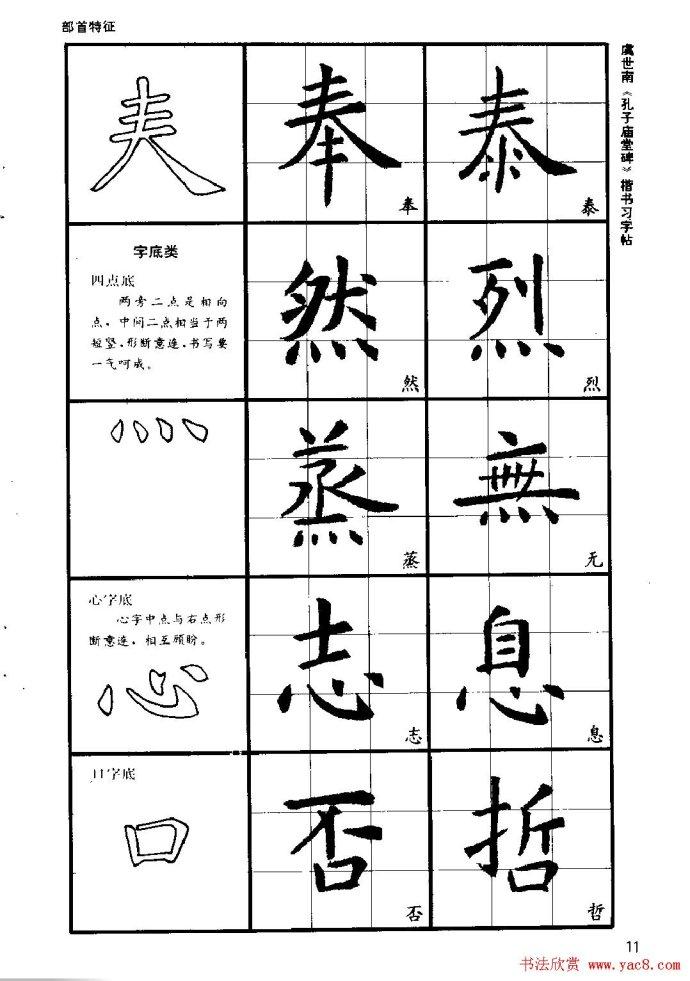 部首特征
虞世南《孔子庙堂碑》楷书习字帖
奉
泰
奉
泰
字底类
四点底
两旁二点是相向
点，中间二点相当于两
短竖，形断意连，书写要
一气呵成。
然
烈
然
烈
灬
蒸
無
蒸
无
心字底
心字中点与右点形
断意连，相互顾盼。
心
志
息
志
息
口字底
口
否
哲
否
哲
11
书法欣赏 www.yac8.com